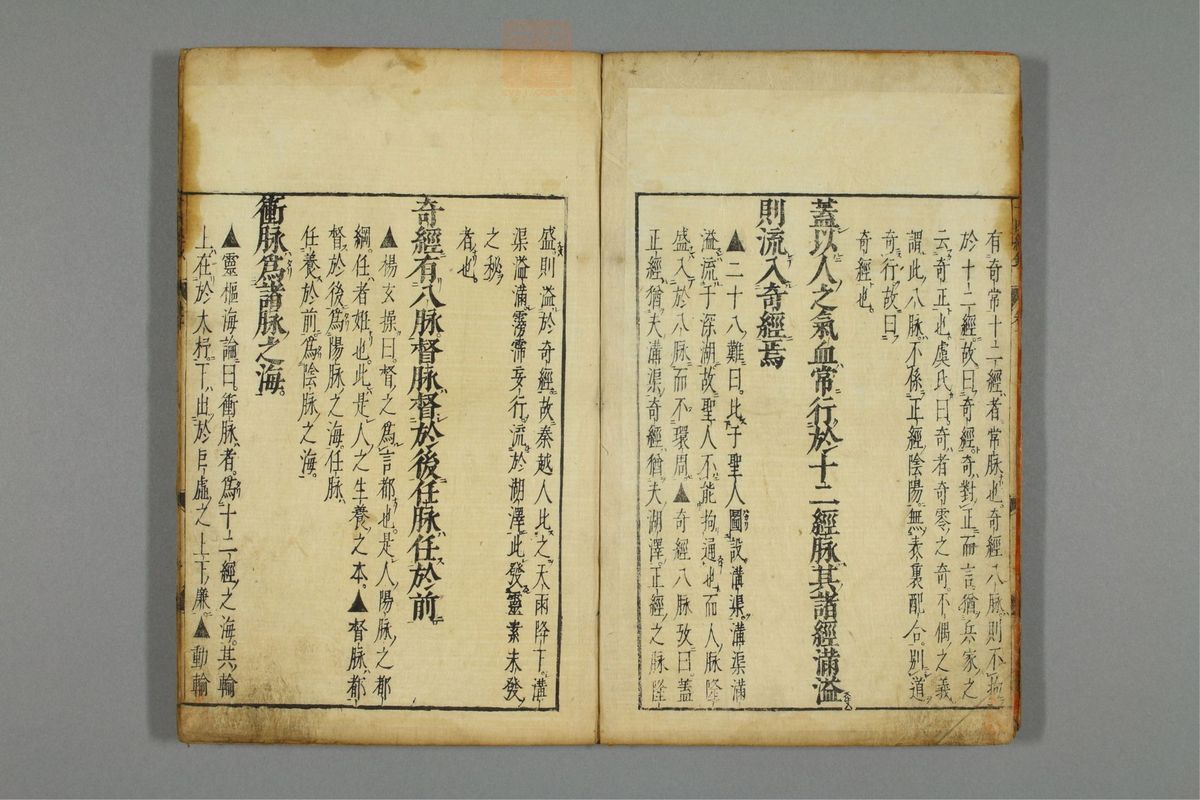 有奇常十二經者常脉也奇經八脉則不拘
於十二經故曰奇經奇對正而言猶兵家之
云奇正也虞氏曰奇者奇零之奇不偶之義
謂此八脉不係正經陰陽無表裏配合別道
奇行故曰
奇經也
蓋以人之氣血常行於十二經脉其諸經滿溢
則流入奇經焉
▲二十八難曰比于聖人圖設溝渠溝渠滿
溢流于深湖故聖人不能拘通也而人脉隆
盛入於八脉而不環周▲奇經八脉攷曰蓋
正經猶夫溝渠奇經猶夫湖澤正經之脉隆
盛則溢於奇經故秦越人比之天雨降下溝
渠溢滿雱霈妄行流於湖澤此發靈素未發
之秘
者也
奇經有八脉督脉督於後任脉任於前
▲楊玄操曰督之爲言都也是人陽脉之都
綱任者妊也此是人之生養之本▲督脉都
督於後爲陽脉之海任脉
任養於前爲陰脉之海
衝脉爲諸脉之海
▲靈樞海論曰衝脉者爲十二經之海其輸
上在於大杼下出於巨虛之上下廉▲動輸